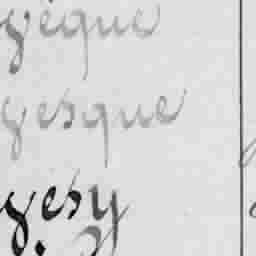 yèque
yesque
yesy